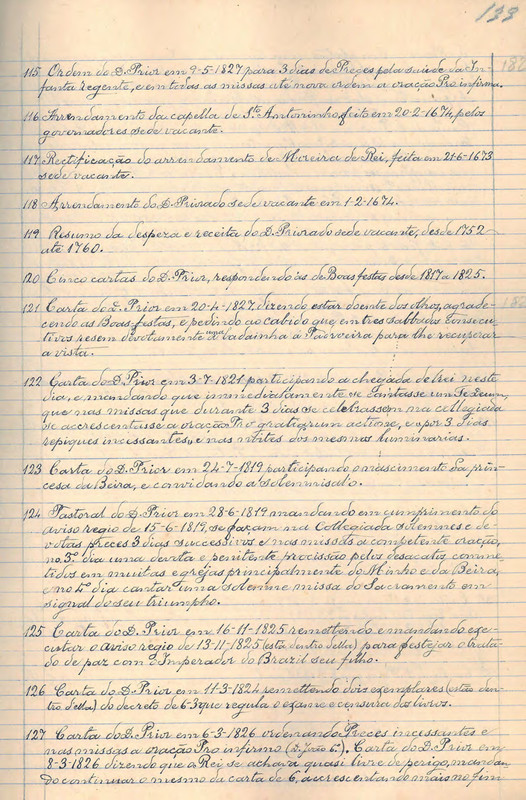 133
115 Ordem do D. Prior em 9-5-1827 para 3 dias de Preces pela saude da In-
fanta regente, e em todas as missas até nova ordem a oração Pro infirma.
116 Arrendamento da capella de Sto Antoninho, feito em 20-2-1674, pelos
governadores sede vacante.
117 Rectificação do arrendamento de Moreira de Rei, feita em 21-6-1673
sede vacante.
118 Arrendamento do D. Priorado sede vacante em 1-2-1674.
119 Resumo da despeza e receita do D. Priorado sede vacante, desde 1752
até 1760.
120 Cinco cartas do D. Prior, respondendo ás de Boas festas desde 1817 a 1825.
121 Carta do D. Prior em 20-4-1827 dizendo estar doente dos olhos, agrade-
cendo as Boas festas, e pedindo ao cabido que em tres sabbados consecu-
tivos resem devotamente uma Ladainha á Padroeira para lhe recuperar
a vista.
122 Carta do D. Prior em 3-7-1821 participando a chegada de Rei neste
dia, e mandando que immediatamente se cantasse um Te Deum,
que nas missas que durante 3 dias se celebrassem na collegiada
se accrescentasse a oração Pro gratiarum actione, e por 3 dias
repiques incessantes, e nas noites dos mesmos luminarias.
123 Carta do D. Prior em 24-7-1819 participando o nascimento da prin-
cesa da Beira, e convidando a solemnisal-o.
124 Pastoral do D. Prior em 28-6-1819 mandando em cumprimento do
aviso regio de 15-6-1819, se façam na Collegiada solemnes e de-
votas preces 3 dias successivos e nas missas a competente oração,
no 3º dia uma devota e penitente procissão pelos desacatos comme-
tidos em muitas egrejas principalmente do Minho e da Beira,
e no 4º dia cantar uma solemne missa do Sacramento em
signal do seu triumpho.
125 Carta do D. Prior em 16-11-1825 remettendo e mandando exe-
cutar o aviso regio de 13-11-1825 (está dentro della) para festejar o trata-
do de paz com o Imperador do Brazil seu filho.
126 Carta do D. Prior em 11-3-1824 remettendo dois exemplares (estão den-
tro della) do decreto de 6-3 que regula o exame e censura dos livros.
127 Carta do D. Prior em 6-3-1826 ordenando Preces incessantes e
nas missas a oração Pro infirmo (D. João 6º). Carta do D. Prior em
8-3-1826 dizendo que o Rei se achava quasi livre de perigo, mandan-
do continuar o mesmo de carta de 6, accrescentando mais no fim